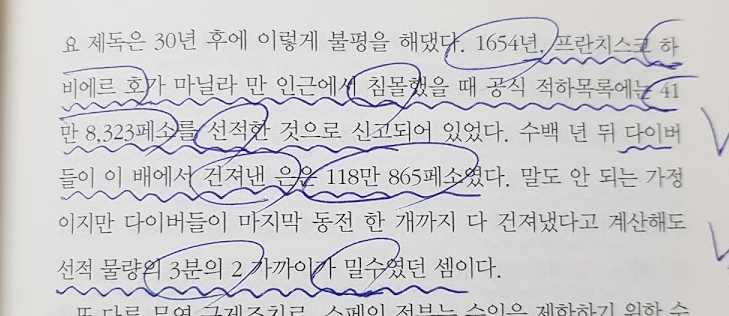 요 제독은 30년 후에 이렇게 불평을 해댔다. 1654년, 프란치스코 하
비에르 호가 마닐라 만 인근에서 침몰했을 때 공식 적하목록에는 41
만 8,323페소를 선적한 것으로 신고되어 있었다. 수백 년 뒤 다이버
들이 이 배에서 건져낸 은은 118만 865페소였다. 말도 안 되는 가정
이지만 다이버들이 마지막 동전 한 개까지 다 건져냈다고 계산해도
선적 물량의 3분의 2 가까이가 밀수였던 셈이다.
또 다른 무역 규제조치로, 스페인 정부는 수입을 제한하기 위한 수